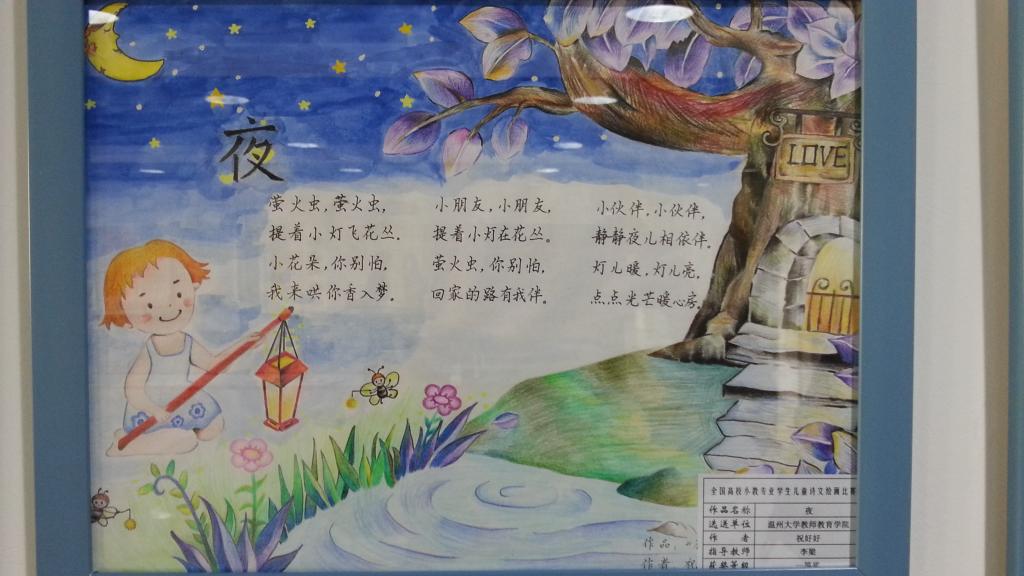 夜
萤火虫,萤火虫,
提着小灯飞花丛.
小花朵,你别怕,
我来哄你香入梦.
小朋友,小朋友,
提着小灯在花丛。
萤火虫,你别怕,
回家的路有我伴.
小伙伴,小伙伴,
静静夜儿相依伴.
灯儿暖,灯儿亮,
点点光芒暖心房.
LOVE
作品:
作者:
全国高校小教专业学生儿童诗文绘画比赛
作品名称 夜
选送单位 温州大学教师教育学院
作 者 祝好好
指导教师 李黎
获奖等级 一等奖